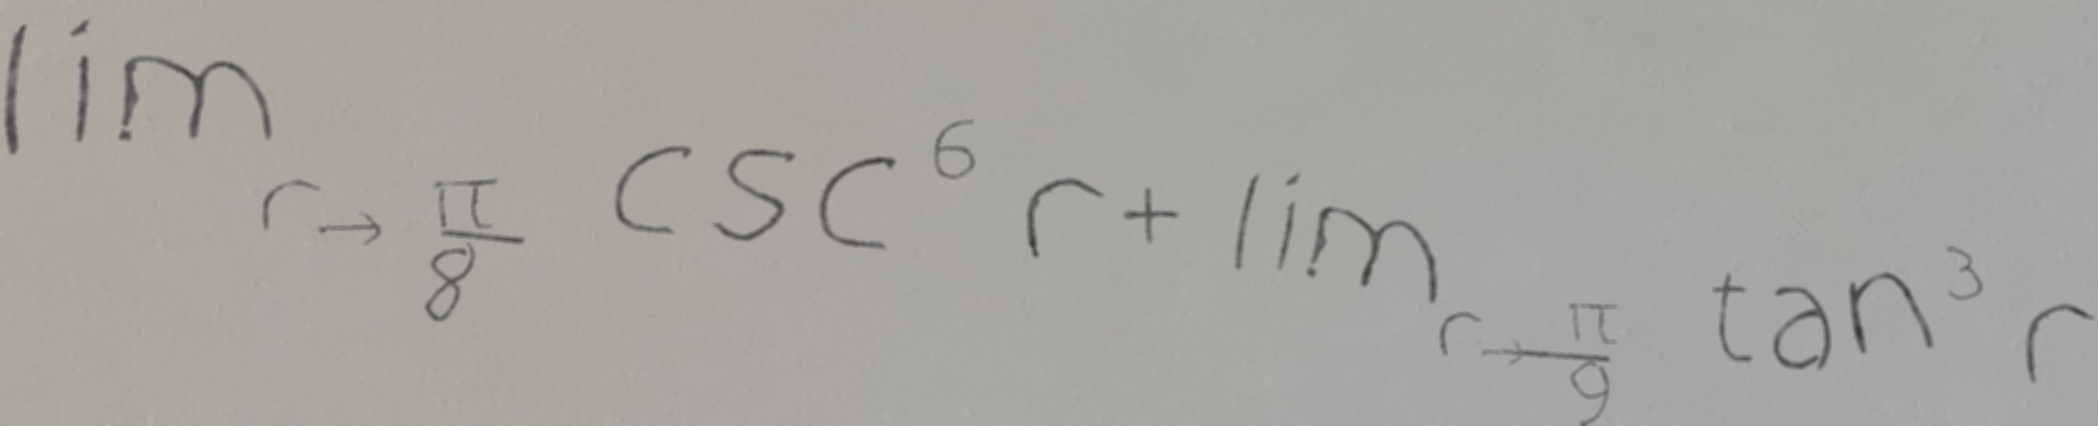 lim r→π/8 csc⁶ r + lim r→π/9 tan³ r